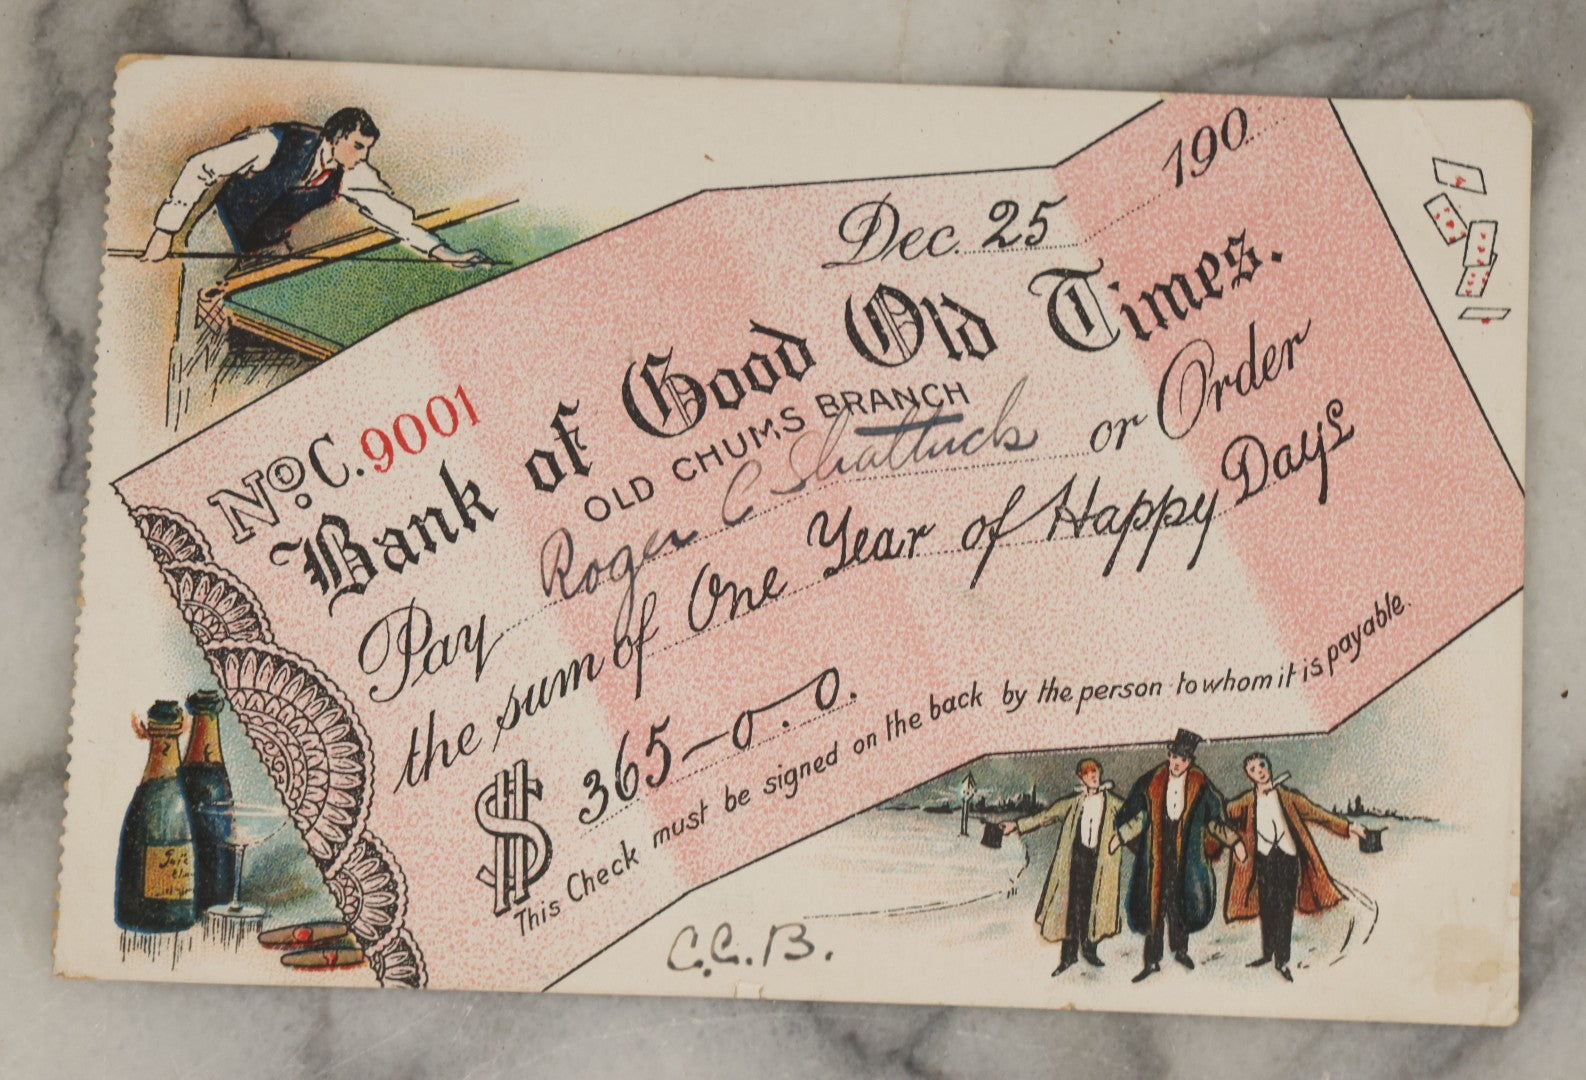 Dec. 25 190
No. C. 9001
Bank of Good Old Times.
OLD CHUMS BRANCH
Pay Roger C Shattuck or Order
the sum of One Year of Happy Days
$ 365-0.0.
This Check must be signed on the back by the person to whom it is payable.
C.C.B.